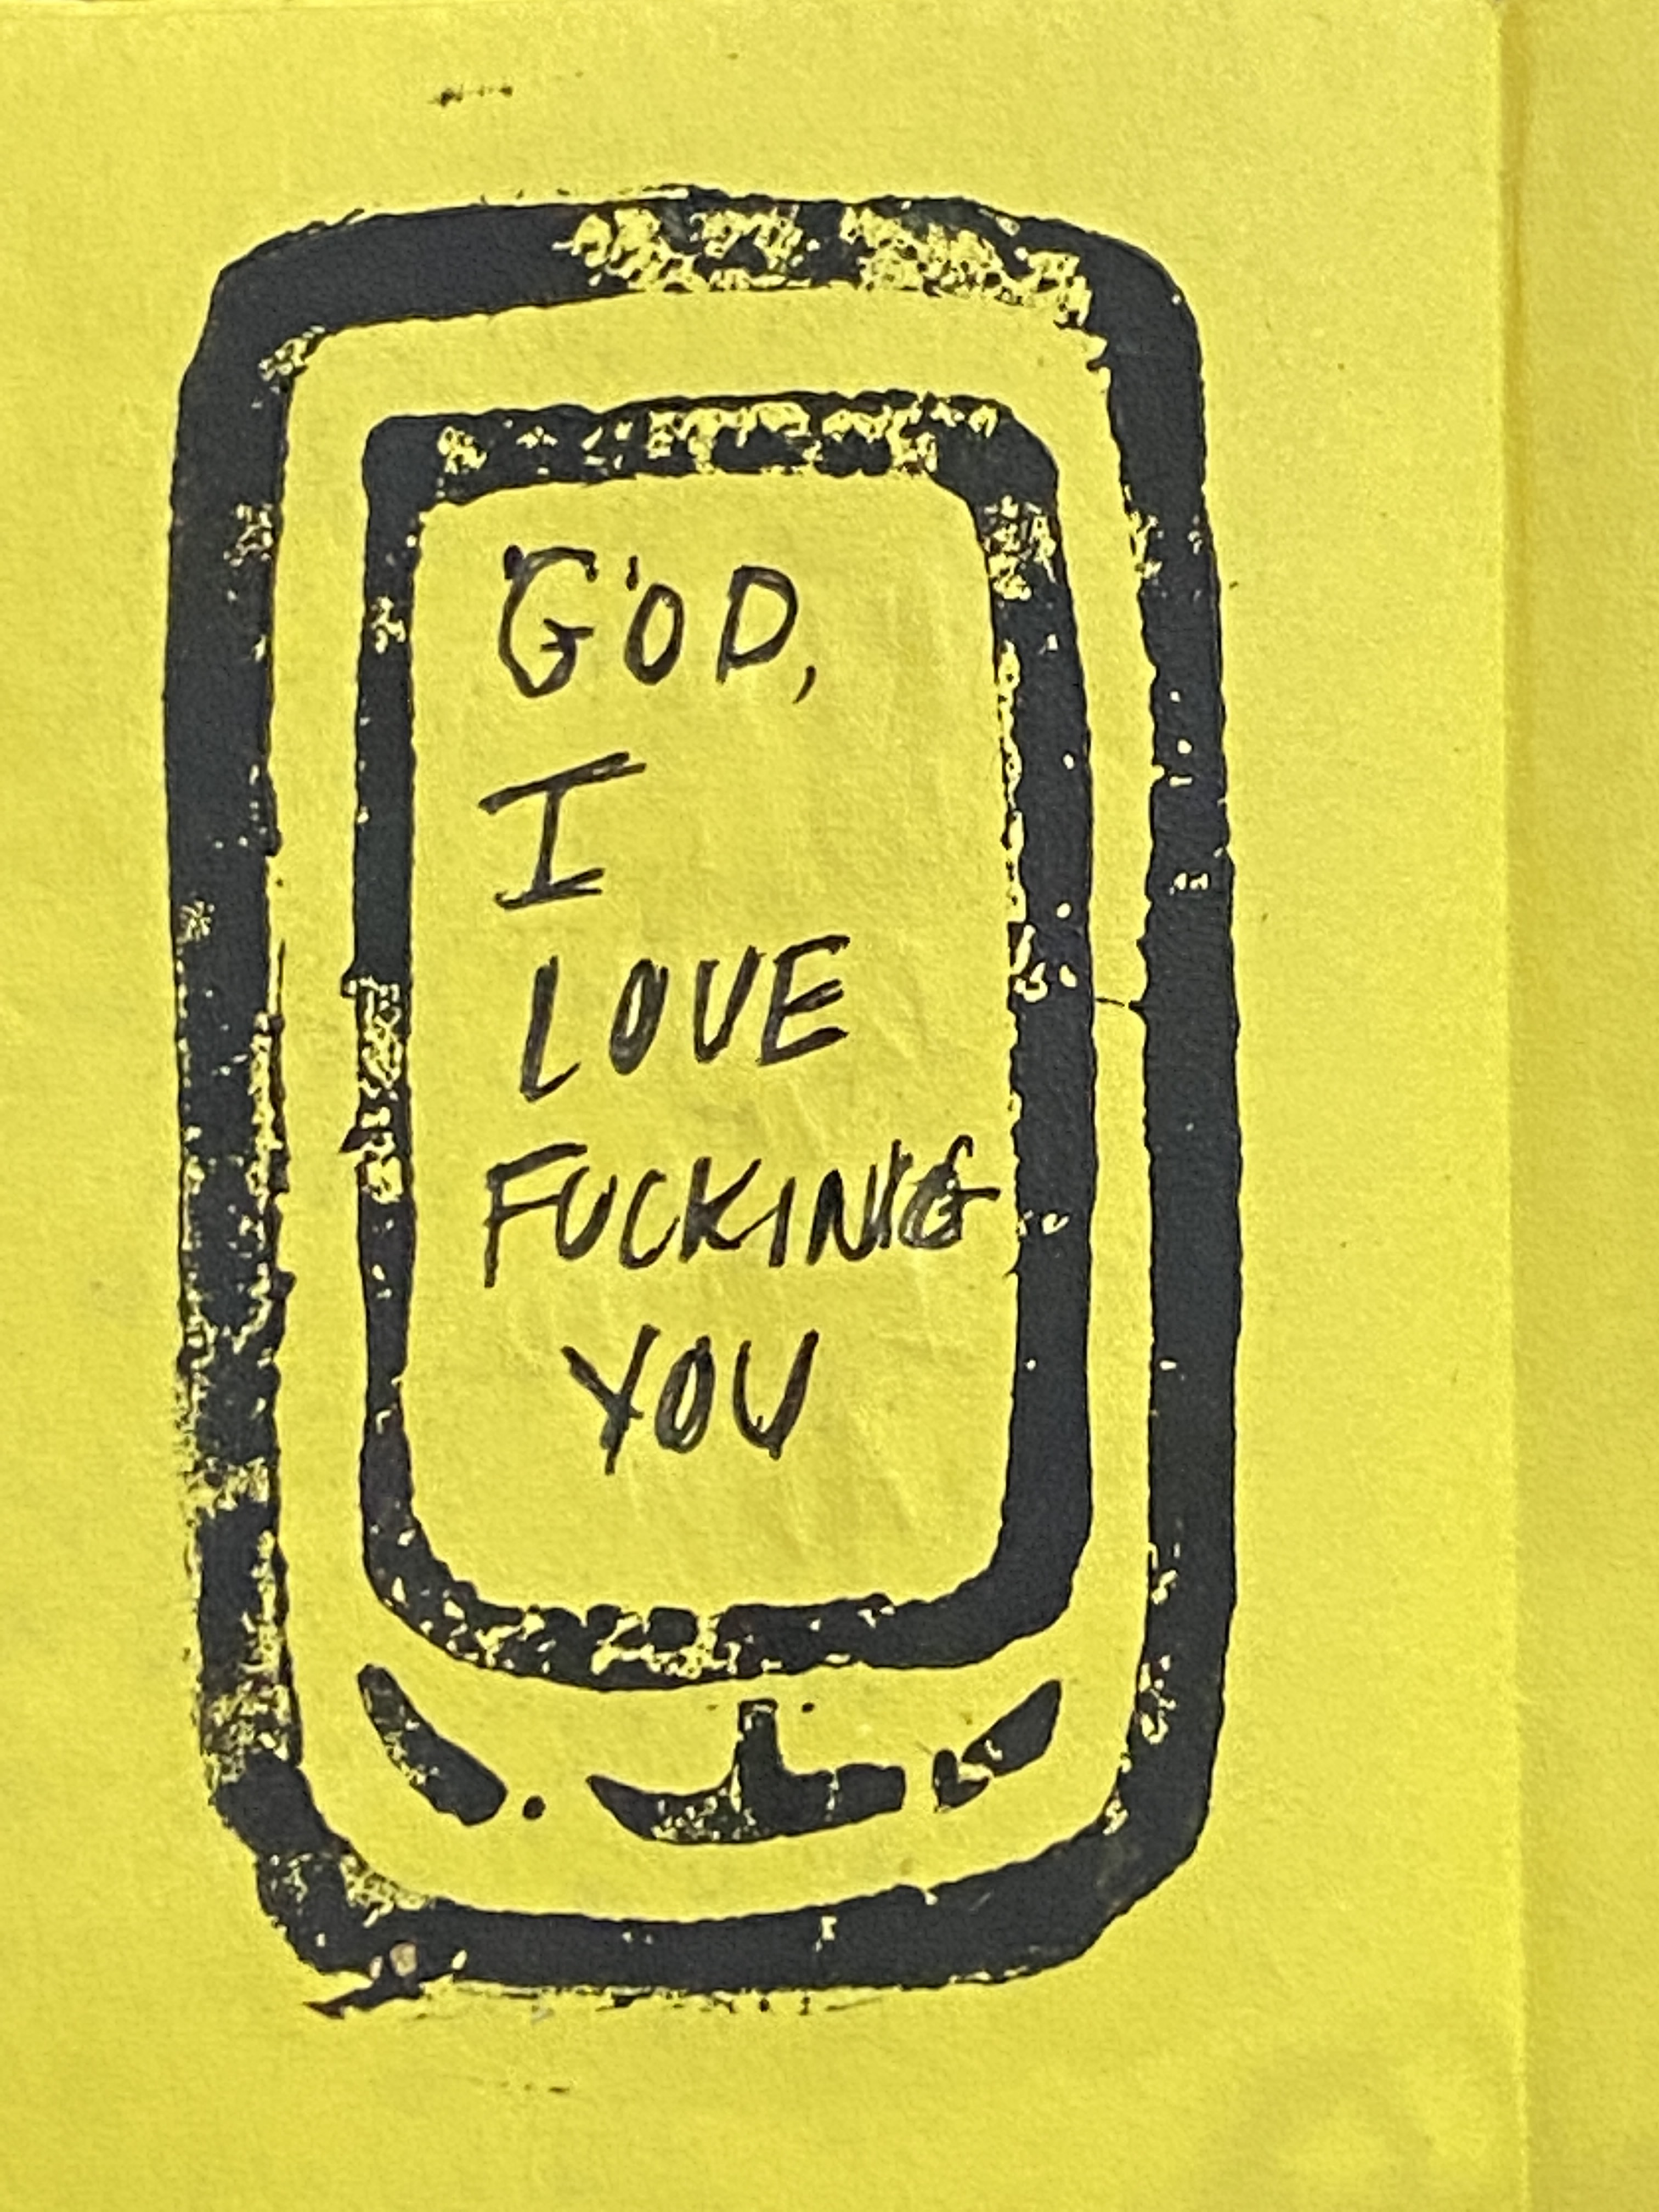 GOD,
I
LOVE
FUCKING
YOU